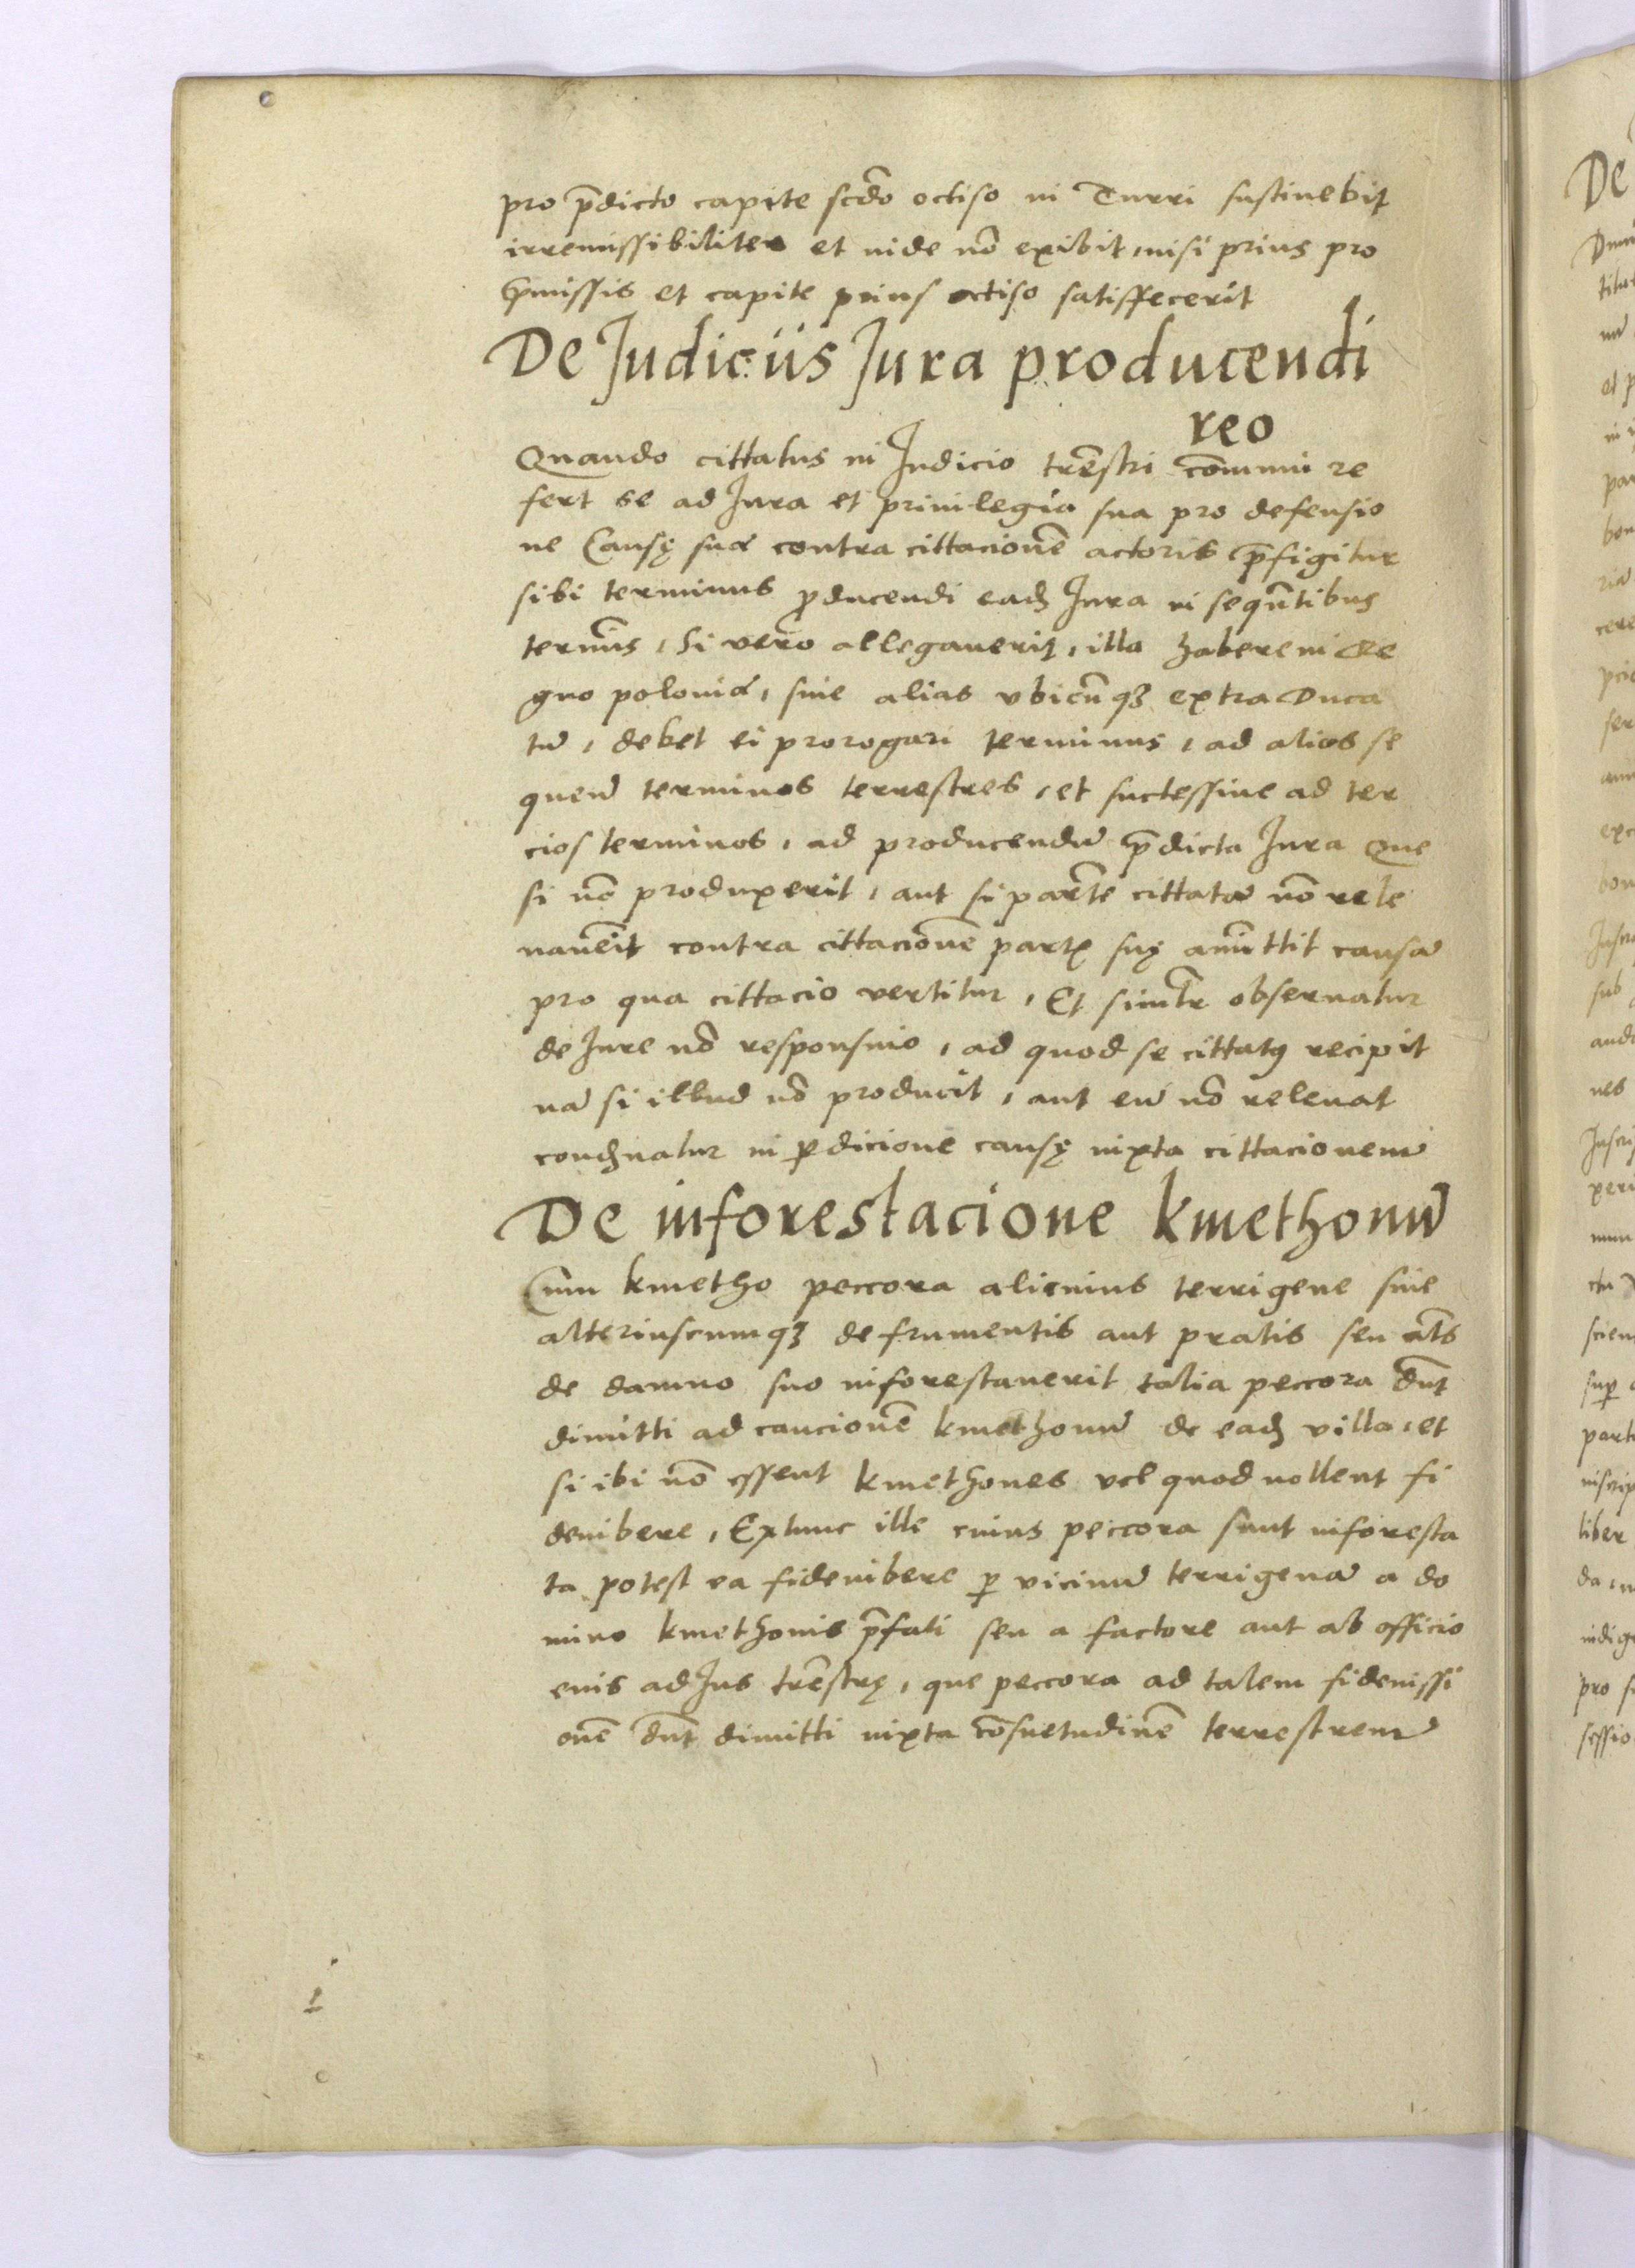 pro p̄dicto capite scd̄o occiso in Turri sustinebit
irremissibiliter et inde nō exibit, nisi prius pro
p̄missis et capite prius occiso satisffecerit
De Judiciis Jura producendi
reo
Quando cittatus in Judicio trēstri cōmuni re
fert se ad Jura et priuilegia sua pro defensio
ne Causę suæ contra cittacionē actoris p̄figitur
sibi terminus ꝓducendi eadꝫ Jura in sequētibus
termīs, Si vero allegauerit, illa habere in Re
gno poloniæ, siue alias vbicūqꝫ extra Duca
tū, debet ei prorogari terminus, ad alios se
quen̄ terminos terrestres, et successiue ad ter
cios terminos, ad producendū p̄dicta Jura Que
si nō produxerit, aut si partē cittatā nō rele
uauērit contra cittacionē partꝭ suę amīttit causā
pro qua cittacio vertitur, Et simlr̄ obseruatur
de Jure nō responsiuo, ad quod se cittatꝰ recipit
nā si illud nō producit, aut eū nō releuat
condꝫnatur in ꝑdicione causę iuxta cittacionem
De inforestacione kmethonū
Cum kmetho peccora alicuius terrigene siue
alteriuscumqꝫ de frumentis aut pratis seu al̄s
de damno suo inforestauerit talia peccora dn̄t
dimitti ad caucionē kmethonū de eadꝫ villa, et
si ibi nō essent kmethones vel quod nollent fi
deiubere, Extunc ille cuius peccora sunt inforesta
ta potest ea fideiubere ꝑ vicinū terrigenā a do
mino kmethonis p̄fati seu a factore aut ab officio
eius ad Jus trēstrę, que peccora ad talem fideiussi
onē dn̄t dimitti iuxta cōsuetudinē terrestrem